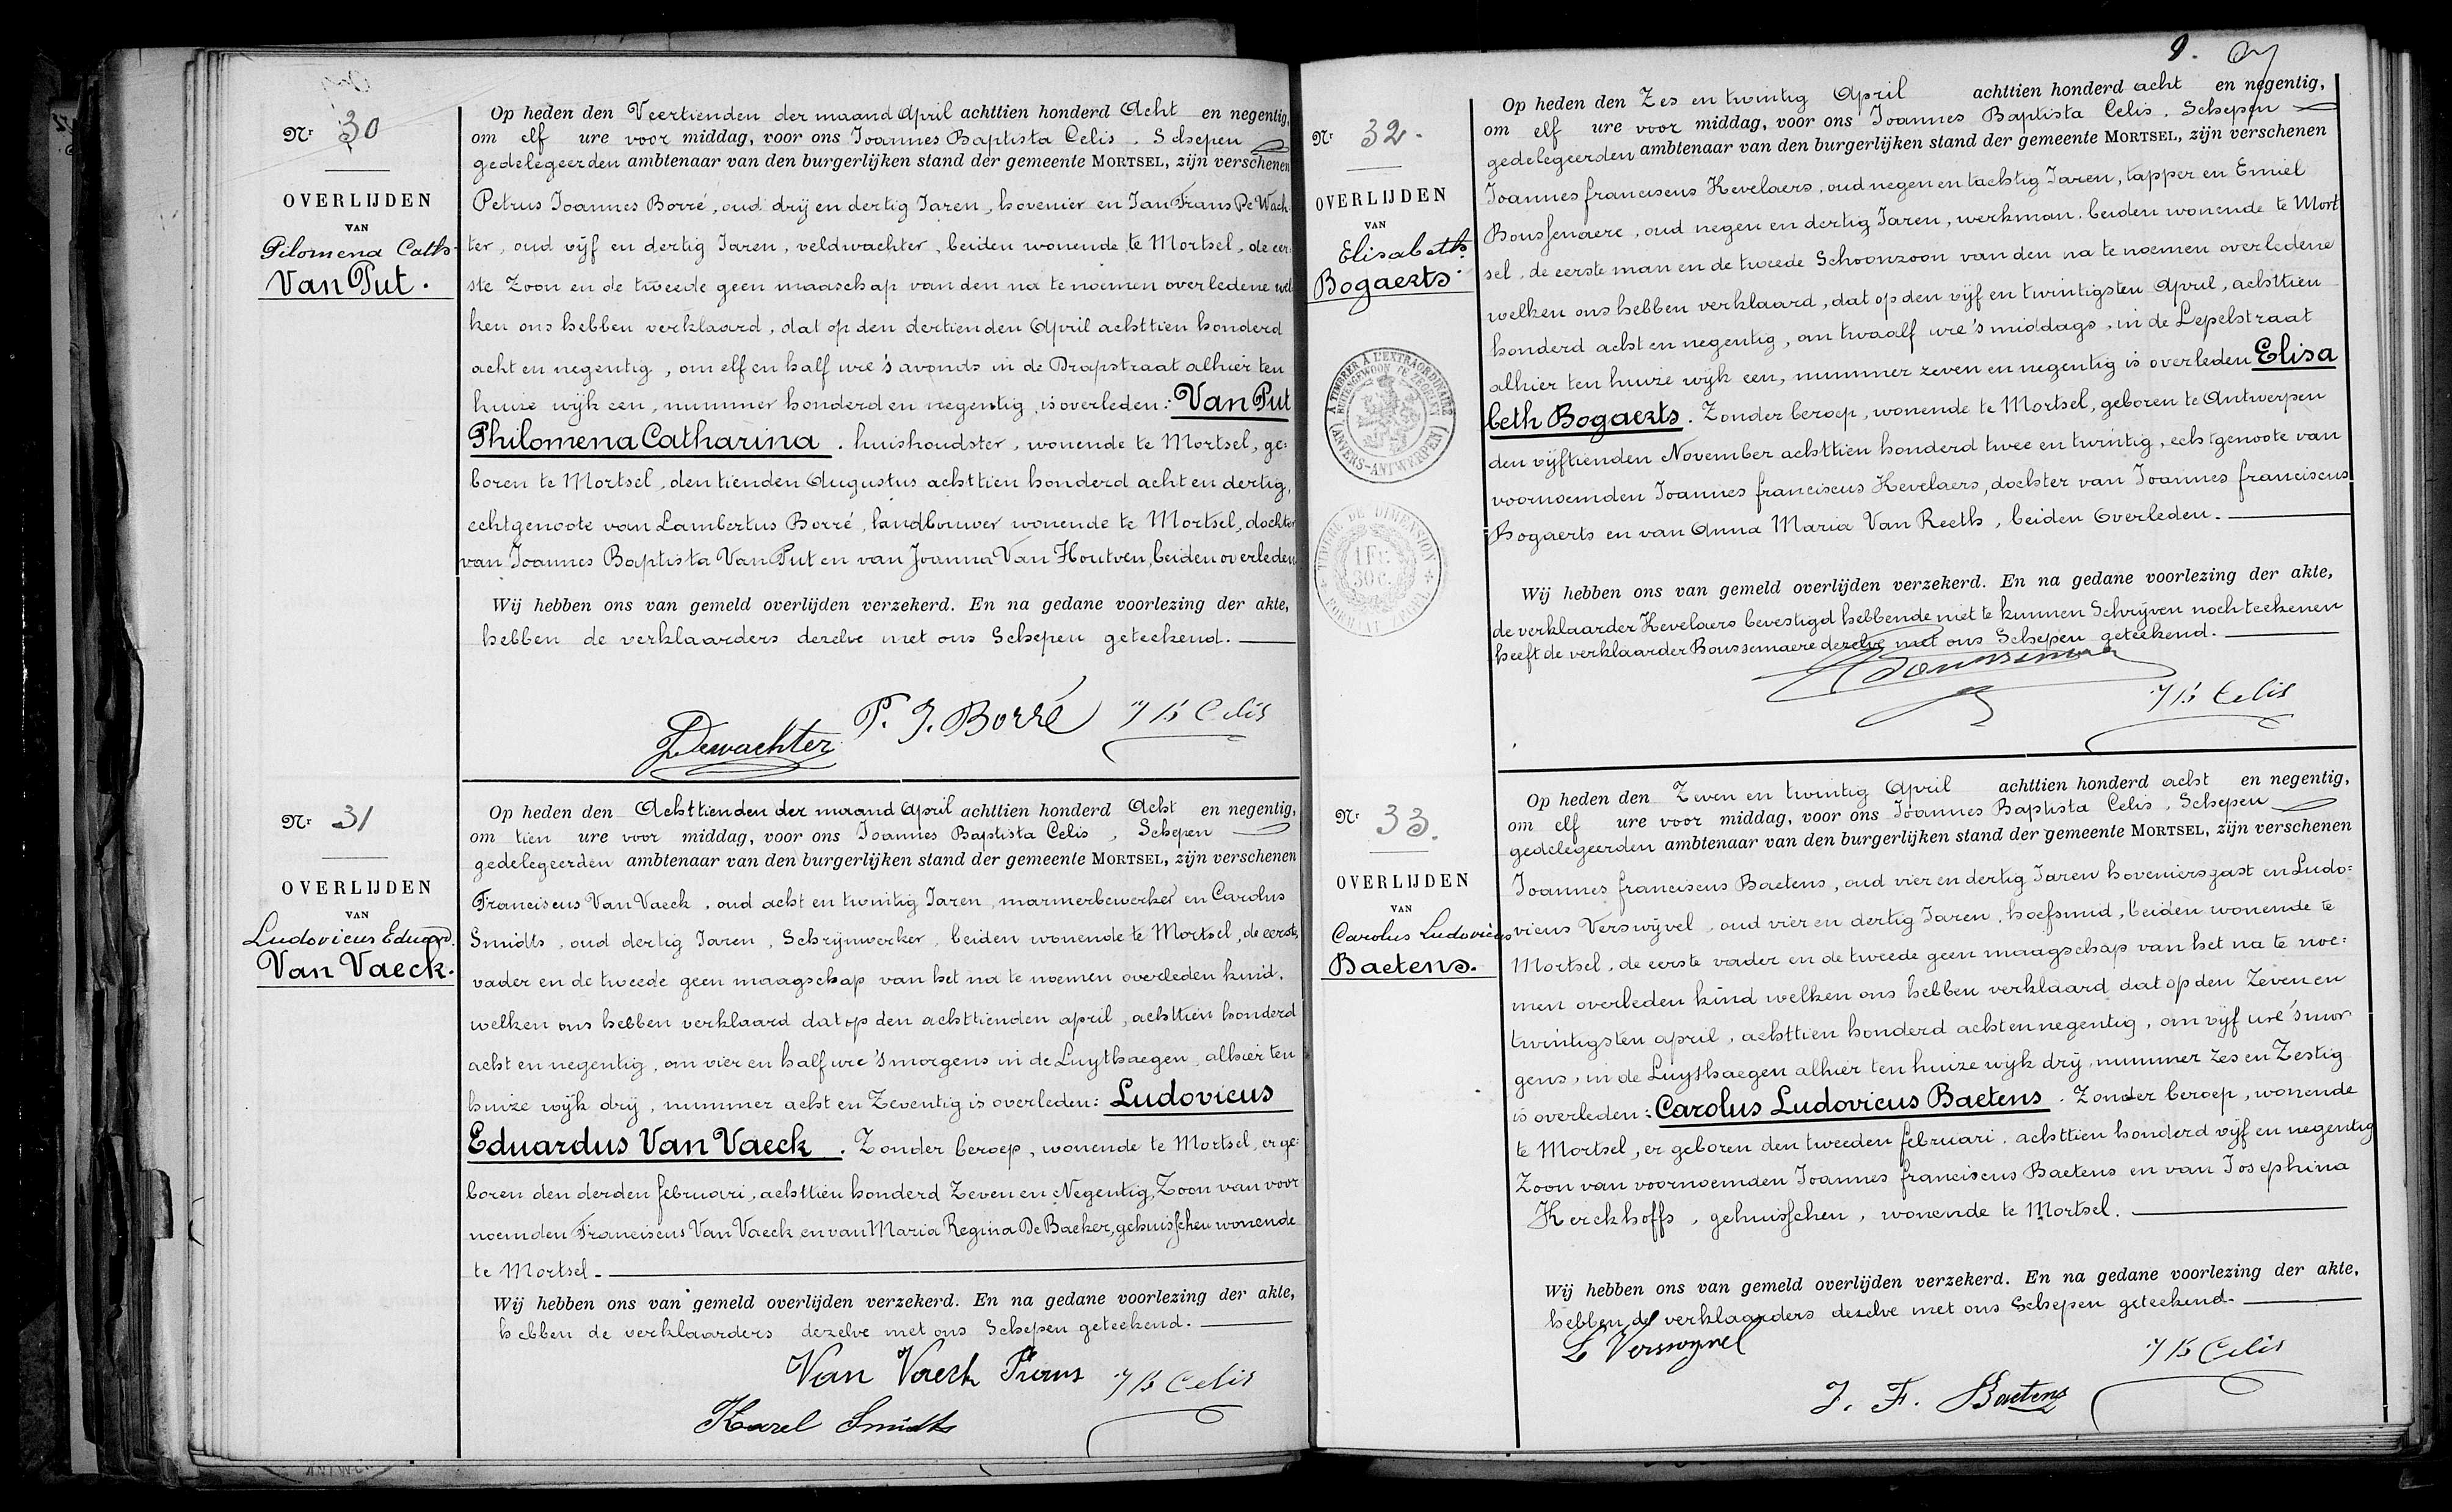 Nr 30
OVERLIJDEN
VAN
Pilomena Cath.
Van Put.
Op heden den Veertienden der maand April achttien honderd Acht en negentig,
om elf ure voor middag, voor ons Joannes Baptista Celis, Schepen
gedelegeerden ambtenaar van den burgerlijken stand der gemeente MORTSEL, zijn verschenen
Petrus Joannes Borré, oud drij en dertig Jaren, hovenier en Jan Frans De Wach-
ter, oud vijf en dertig Jaren, veldwachter, beiden wonende te Mortsel, de eer-
ste Zoon en de tweede geen maaschap van den na te noemen overledene wel
ken ons hebben verklaard, dat op den dertienden April achttien honderd
acht en negentig, om elf en half ure 's avonds in de Drapstraat alhier ten
huize wijk een, nummer honderd en negentig, is overleden: Van Put
Philomena Catharina. huishoudster, wonende te Mortsel, ge-
boren te Mortsel, den tienden Augustus achttien honderd acht en dertig,
echtgenoote van Lambertus Borré, landbouwer wonende te Mortsel, dochter
van Joannes Baptista Van Put en van Joanna Van Houtven, beiden overleden
Wij hebben ons van gemeld overlijden verzekerd. En na gedane voorlezing der akte,
hebben de verklaarders dezelve met ons Schepen geteekend.
Dewachter P. J. Borré J B Celis
Nr 31
OVERLIJDEN
VAN
Ludovicus Eduard.
Van Vaeck.
Op heden den Achttienden der maand April achttien honderd Acht en negentig,
om tien ure voor middag, voor ons Joannes Baptista Celis, Schepen
gedelegeerden ambtenaar van den burgerlijken stand der gemeente MORTSEL, zijn verschenen
Franciscus Van Vaeck, oud acht en twintig Jaren, marmerbewerker en Carolus
Smidts, oud dertig Jaren, Schrijnwerker, beiden wonende te Mortsel, de eerste
vader en de tweede geen maagschap van het na te noemen overleden kind.
welken ons hebben verklaard dat op den achttienden april, achttien honderd
acht en negentig, om vier en half ure 's morgens in de Luythaegen, alhier ten
huize wijk drij, nummer acht en Zeventig is overleden: Ludovicus
Eduardus Van Vaeck. Zonder beroep, wonende te Mortsel, er ge-
boren den derden februari, achttien honderd Zeven en Negentig, Zoon van voor
noemden Franciscus Van Vaeck en van Maria Regina De Backer, gehuisschen wonende
te Mortsel.
Wij hebben ons van gemeld overlijden verzekerd. En na gedane voorlezing der akte,
hebben de verklaarders dezelve met ons Schepen geteekend.
Van Vaeck Frans J B Celis
Karel Smidts
9.
Nr 32.
OVERLIJDEN
VAN
Elisabeth
Bogaerts.
A TIMBRER À L'EXTRAORDINAIRE
BUITENGEWOON TE ZEGELEN
(ANVERS-ANTWERPEN)
TIMBRE DE DIMENSION
1 Fr.
30 c.
FORMAAT ZEGEL
Op heden den Zes en twintig April achttien honderd acht en negentig,
om elf ure voor middag, voor ons Joannes Baptista Celis, Schepen
gedelegeerden ambtenaar van den burgerlijken stand der gemeente MORTSEL, zijn verschenen
Joannes franciscus Kevelaers, oud negen en tachtig Jaren, tapper en Emiel
Boussemaere, oud negen en dertig Jaren, werkman. beiden wonende te Mort
sel, de eerste man en de tweede Schoonzoon van den na te noemen overledene
welken ons hebben verklaard, dat op den vijf en twintigsten April, achttien
honderd acht en negentig, om twaalf ure 's middags, in de Lepelstraat
alhier ten huize wijk een, nummer zeven en negentig is overleden Elisa
beth Bogaerts. Zonder beroep, wonende te Mortsel, geboren te Antwerpen
den vijftienden November achttien honderd twee en twintig, echtgenoote van
voornoemden Joannes franciscus Kevelaers, dochter van Joannes franciscus
Bogaerts en van Anna Maria Van Reeth, beiden Overleden.
Wij hebben ons van gemeld overlijden verzekerd. En na gedane voorlezing der akte,
de verklaarder Kevelaers bevestigd hebbende niet te kunnen Schrijven noch teekenen
heeft de verklaarder Boussemaere dezelve met ons Schepen geteekend.
J B Celis
Nr 33.
OVERLIJDEN
VAN
Carolus Ludovicus
Baetens.
Op heden den Zeven en twintig April achttien honderd acht en negentig,
om elf ure voor middag, voor ons Joannes Baptista Celis, Schepen
gedelegeerden ambtenaar van den burgerlijken stand der gemeente MORTSEL, zijn verschenen
Joannes franciscus Baetens, oud vier en dertig Jaren hoveniersgast en Ludo-
vicus Verswijvel, oud vier en dertig Jaren, hoefsmid, beiden wonende te
Mortsel, de eerste vader en de tweede geen maagschap van het na te noe-
men overleden kind welken ons hebben verklaard dat op den Zeven en
twintigsten april, achttien honderd acht en negentig, om vijf ure 's mor
gens, in de Luythaegen alhier ten huize wijk drij, nummer Zes en Zestig
is overleden: Carolus Ludovicus Baetens. Zonder beroep, wonende
te Mortsel, er geboren den tweeden februari, achttien honderd vijf en negentig
Zoon van voornoemden Joannes franciscus Baetens en van Josephina
Kerckhoffs, gehuisschen, wonende te Mortsel.
Wij hebben ons van gemeld overlijden verzekerd. En na gedane voorlezing der akte,
hebben de verklaarders dezelve met ons Schepen geteekend.
L Verswijvel J B Celis
J. F. Baetens